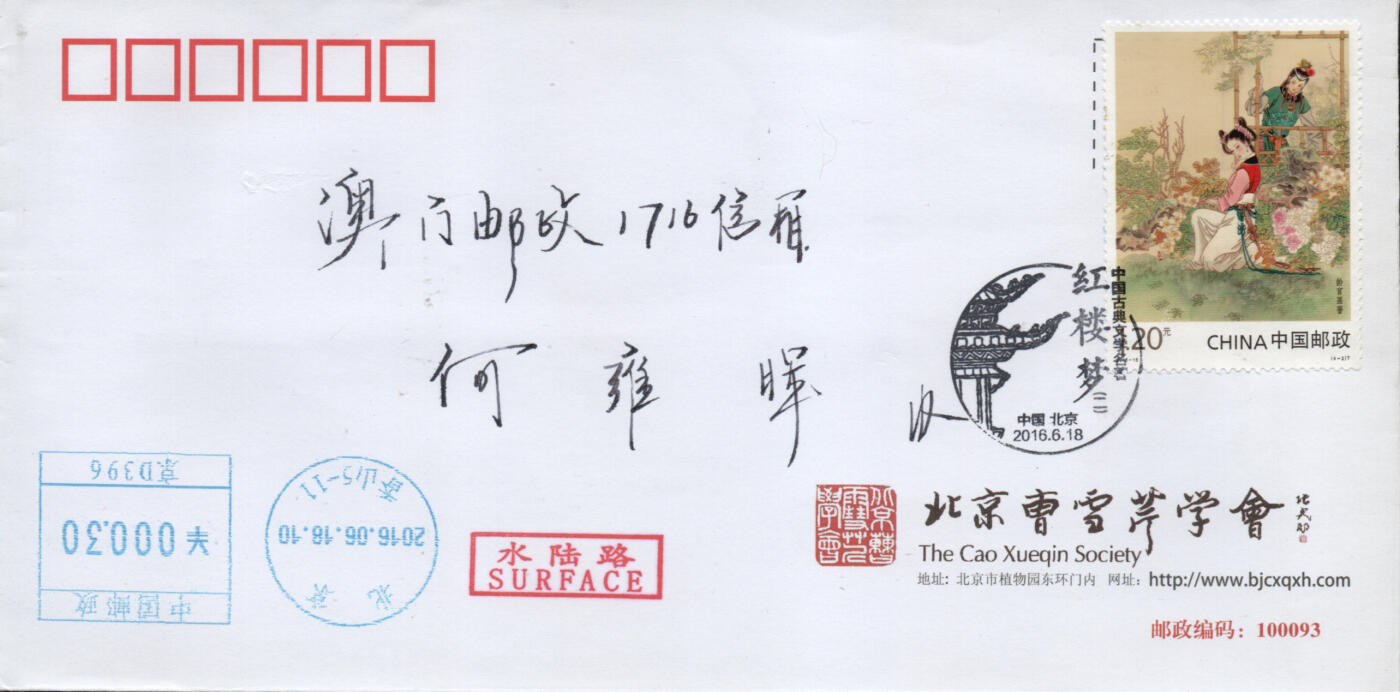 澳门邮政1716信箱
何雍晖收
1.20元
CHINA中国邮政
中国古典文学名著
红楼梦(二)
中国 北京
2016.6.18
京D396
¥000.30
中国邮政
香山5-11
2016.06.18.10
北京
水陆路
SURFACE
北京曹雪芹学會
北京曹雪芹學會
The Cao Xueqin Society
地址: 北京市植物园东环门内 网址: http://www.bjcxqxh.com
邮政编码: 100093